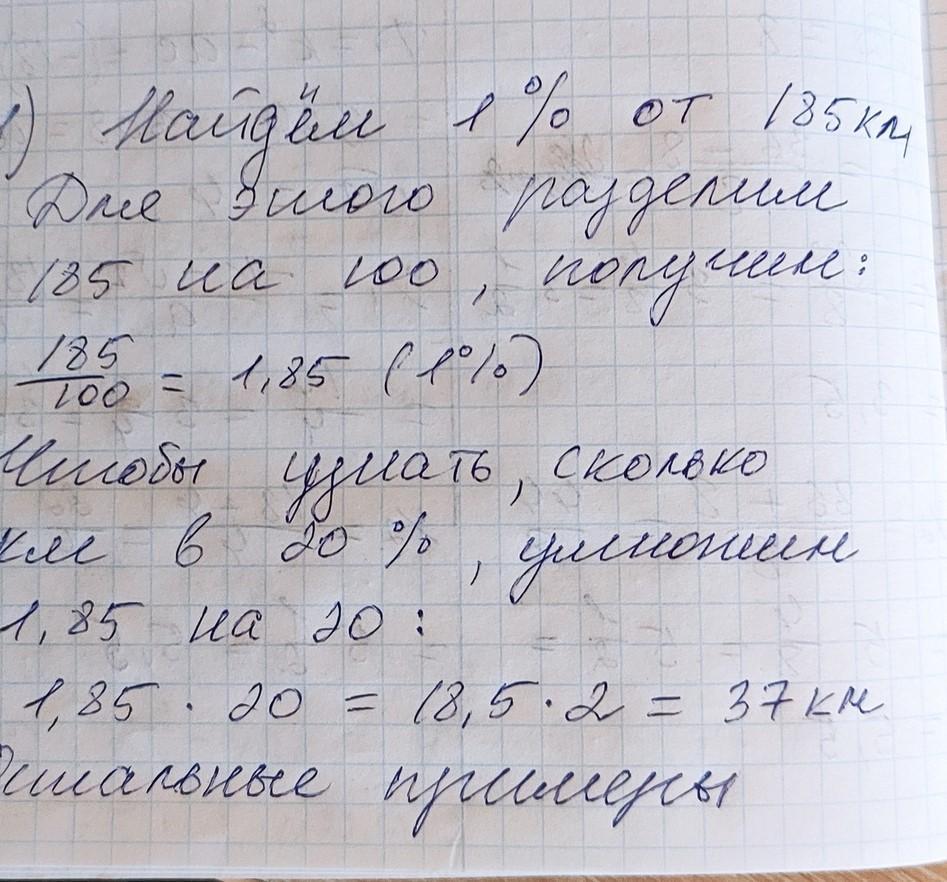 1) Найдём 1% от 185км
Для этого разделим
185 на 100, получим:
185/100 = 1,85 (1%)
Чтобы узнать, сколько
км в 20%, умножим
1,85 на 20:
1,85 · 20 = 18,5 · 2 = 37км
Остальные примеры